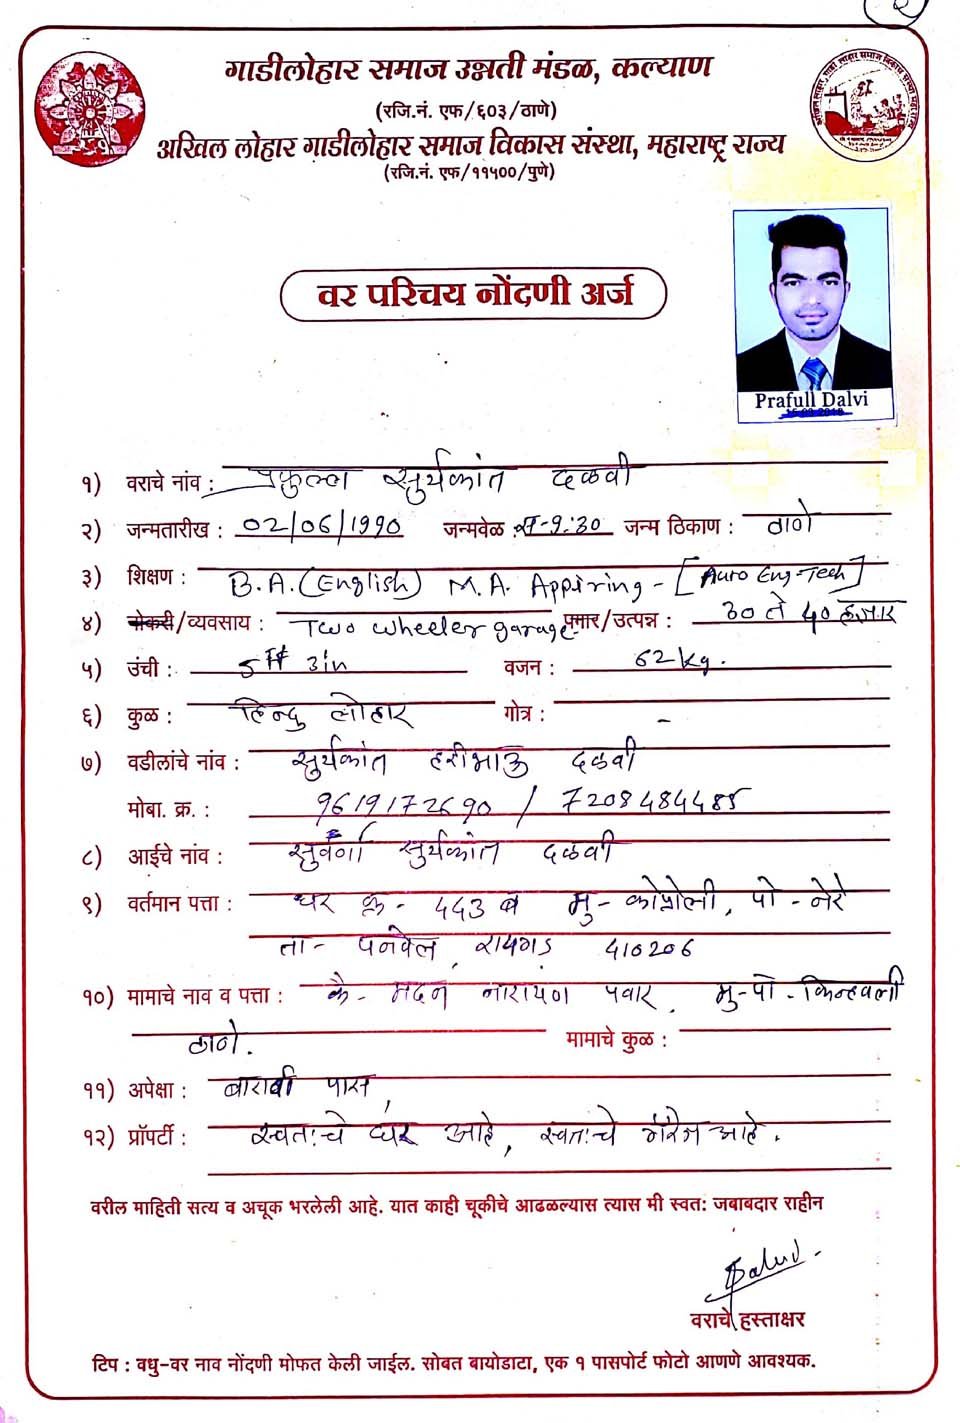 गाडीलोहार समाज उन्नती मंडळ, कल्याण
(रजि.नं. एफ/६०३/ठाणे)
अखिल लोहार गाडीलोहार समाज विकास संस्था, महाराष्ट्र राज्य
(रजि.नं. एफ/११५००/पुणे)
वर परिचय नोंदणी अर्ज
Prafull Dalvi
१) वराचे नांव : प्रफुल्ल सुर्यकांत दळवी
२) जन्मतारीख : 02/06/1990 जन्मवेळ : रा-9:30 जन्म ठिकाण : ठाणे
३) शिक्षण : B.A.(English) M.A. Appiring - [Auro Eng-Tech]
४) नोकरी/व्यवसाय : Two wheeler garage पगार/उत्पन्न : 30 ते 40 हजार
५) उंची : 5ft 3in वजन : 62 kg.
६) कुळ : हिन्दु लोहार गोत्र : -
७) वडीलांचे नांव : सुर्यकांत हरीभाऊ दळवी
मोबा. क्र. : 9619172690 / 7208484485
८) आईचे नांव : सुवर्णा सुर्यकांत दळवी
९) वर्तमान पत्ता : घर क्र - 443 ब मु - कोप्रोली, पो - नेरे
ता - पनवेल, रायगड 410206
१०) मामाचे नाव व पत्ता : कै - मदन नारायण पवार, मु-पो - किन्हवली
ठाणे. मामाचे कुळ :
११) अपेक्षा : बारावी पास,
१२) प्रॉपर्टी : स्वतःचे घर आहे, स्वतःचे गॅरेज आहे.
वरील माहिती सत्य व अचूक भरलेली आहे. यात काही चूकीचे आढळल्यास त्यास मी स्वत: जबाबदार राहीन
वराचे हस्ताक्षर
टिप : वधु-वर नाव नोंदणी मोफत केली जाईल. सोबत बायोडाटा, एक १ पासपोर्ट फोटो आणणे आवश्यक.